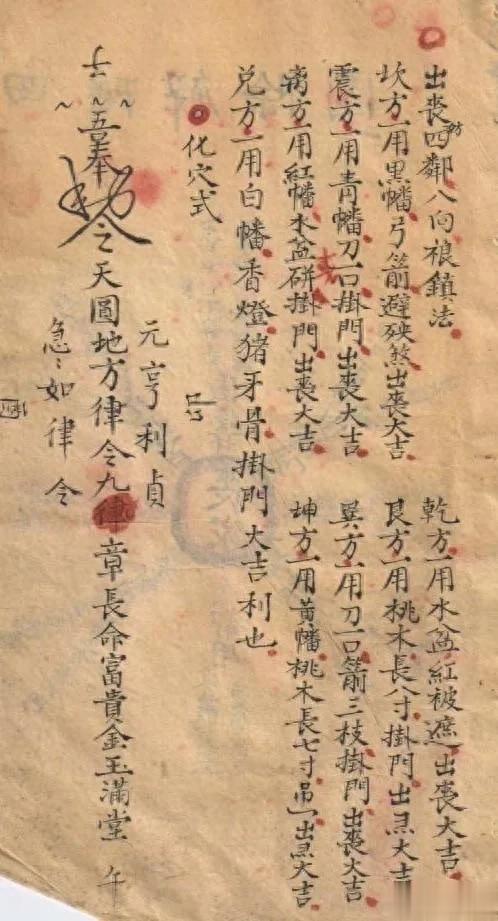 出喪四鄰八向禳鎮法
坎方一用黑幡弓箭避殃煞出喪大吉
乾方一用水盆紅被遮出喪大吉
震方一用青幡刀一口掛門出喪大吉
艮方一用桃木長八寸掛門出喪大吉
离方一用紅幡水盆硑掛門出喪大吉
巽方一用刀一口箭三枝掛門出喪大吉
兌方一用白幡香燈猪牙骨掛門大吉利也
坤方一用黃幡桃木長七寸吊一出喪大吉
化穴式
元亨利貞
奉
令之天圓地方律令九律章長命富貴金玉滿堂 午
急ミ如律令